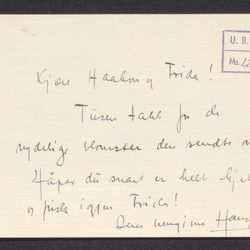 U.B.
Ms.
Kjære Haakon og Frida!
Tusen takk for de
nydelige blomster der sendte
Håper du snart er helt
og frisk igjen Frida!
Deres